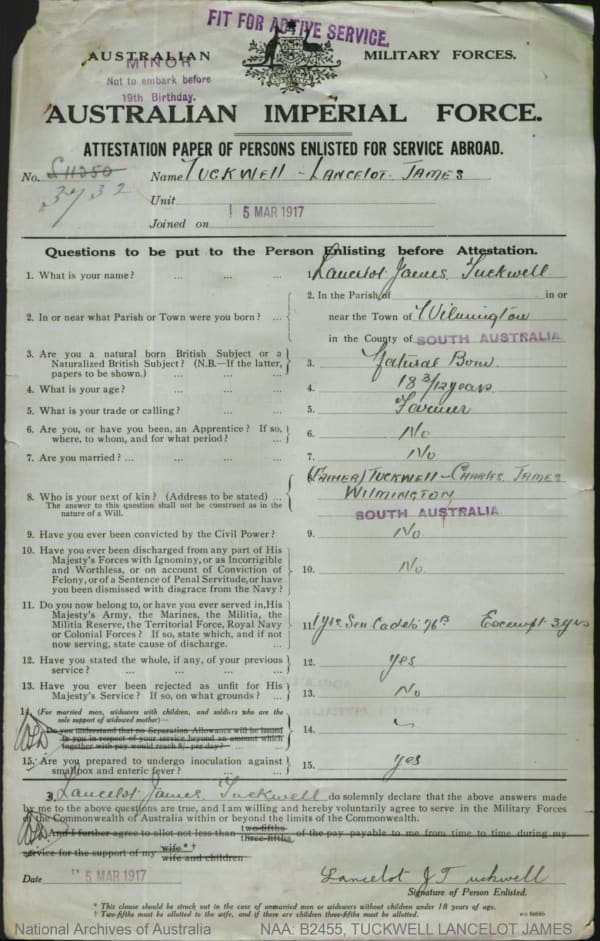 FIT FOR ACTIVE SERVICE.
AUSTRALIAN MILITARY FORCES.
MINOR
Not to embark before
19th Birthday.
AUSTRALIAN IMPERIAL FORCE.
ATTESTATION PAPER OF PERSONS ENLISTED FOR SERVICE ABROAD.
No. £11350 Name TUCKWELL - LANCELOT JAMES
3732
Unit
Joined on 15 MAR 1917
Questions to be put to the Person Enlisting before Attestation.
1. What is your name? ... ... ... 1. Lancelot James Tuckwell
2. In the Parish of in or
2. In or near what Parish or Town were you born? ... near the Town of Wilmington
in the County of SOUTH AUSTRALIA
3. Are you a natural born British Subject or a
Naturalized British Subject? (N.B.—If the latter, 3. Natural Born
papers to be shown.) ... ... ...
4. What is your age? ... ... ... 4. 18 3/12 years
5. What is your trade or calling? ... ... 5. Farmer
6. Are you, or have you been, an Apprentice? If so,
where, to whom, and for what period? ... 6. No
7. Are you married? ... ... ... ... 7. No
(FATHER) TUCKWELL - CHARLES JAMES
8. Who is your next of kin? (Address to be stated) ... WILMINGTON
The answer to this question shall not be construed as in the
nature of a Will. SOUTH AUSTRALIA
9. Have you ever been convicted by the Civil Power? 9. No
10. Have you ever been discharged from any part of His
Majesty's Forces with Ignominy, or as Incorrigible
and Worthless, or on account of Conviction of 10. No
Felony, or of a Sentence of Penal Servitude, or have
you been dismissed with disgrace from the Navy?
11. Do you now belong to, or have you ever served in, His
Majesty's Army, the Marines, the Militia, the
Militia Reserve, the Territorial Force, Royal Navy 11. 1 yr. Sen Cadets 76 B Exempt 3 yrs
or Colonial Forces? If so, state which, and if not
now serving, state cause of discharge. ...
12. Have you stated the whole, if any, of your previous
service? ... ... ... ... 12. Yes
13. Have you ever been rejected as unfit for His
Majesty's Service? If so, on what grounds? ... 13. No
14. (For married men, widowers with children, and soldiers who are the
sole support of widowed mother)—
Do you understand that no Separation Allowance will be issued 14.
to you in respect of your service beyond an amount which
together with pay would reach 8/- per day?
15. Are you prepared to undergo inoculation against
smallpox and enteric fever? ... ... 15. Yes
I, Lancelot James Tuckwell do solemnly declare that the above answers made
by me to the above questions are true, and I am willing and hereby voluntarily agree to serve in the Military Forces
of the Commonwealth of Australia within or beyond the limits of the Commonwealth.
And I further agree to allot not less than two-fifths three-fifths of the pay payable to me from time to time during my
service for the support of my wife * † wife and children
Date 15 MAR 1917 Lancelot J Tuckwell
Signature of Person Enlisted.
* This clause should be struck out in the case of unmarried men or widowers without children under 18 years of age.
† Two-fifths must be allotted to the wife, and if there are children three-fifths must be allotted.
National Archives of Australia NAA: B2455, TUCKWELL LANCELOT JAMES